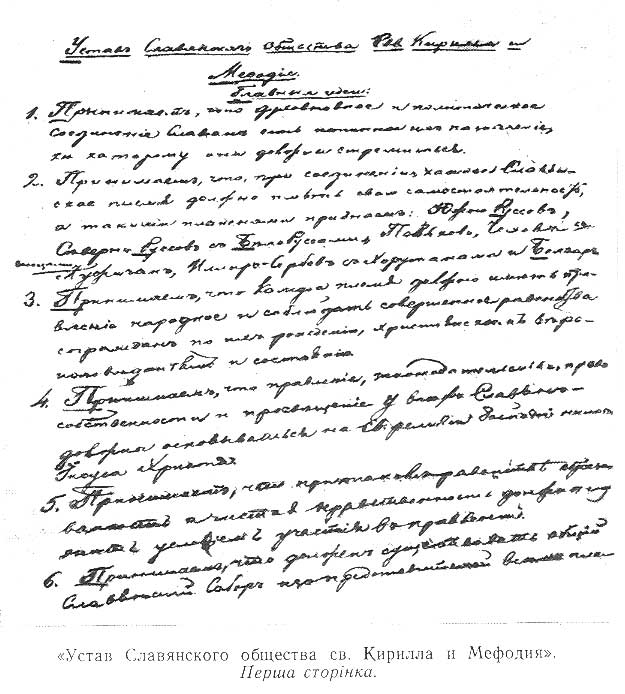 Уставъ Славянскаго общества Св. Кирилла и
Мефодія.
Главныя идеи:
1. Принимаемъ, что духовное и политическое
соединеніе Славянъ есть истинное ихъ назначеніе,
къ которому они должны стремиться.
2. Принимаемъ, что при соединеніи каждое Славян-
ское племя должно имѣть свою самостоятельность,
а такими племенами признаемъ: Южно-Руссовъ,
Сѣверно-Руссовъ съ Бѣлоруссами, Поляковъ, Чеховъ съ
Иллиро-Сербовъ съ Хорутанами и Болгаръ
3. Принимаемъ, что каждое племя должно имѣть пра-
вленіе народное и соблюдать совершенное равенство
согражданъ по ихъ рожденію, христіанскимъ вѣро-
исповѣданіямъ и состоянію
4. Принимаемъ, что правленіе, законодательство, право
собственности и просвѣщеніе у всѣхъ Славянъ
должны основываться на Господа нашего
Іисуса Христа.
5. Принимаемъ, что при равенствѣ образо-
ванность и чистая нравственность должны
условіемъ участія въ правленіи.
6. Принимаемъ, что долженъ существовать общій
Славянскій Соборъ изъ представителей всѣхъ пле-
«Устав Славянского общества св. Кирилла и Мефодия».
Перша сторінка.